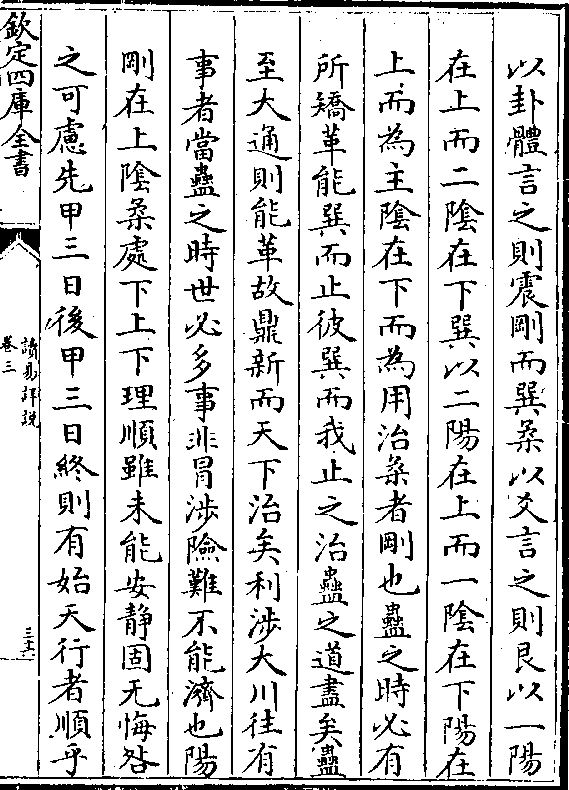 以卦體言之則震剛而巽柔以爻言之則艮以一陽
在上而二陰在下巽以二陽在上而一陰在下陽在
上而為主陰在下而為用治柔者剛也蠱之時必有
所矯革能巽而止彼巽而我止之治蠱之道盡矣蠱
至大通則能革故鼎新而天下治矣利涉大川往有
事者當蠱之時世必多事非冒涉險難不能濟也陽
剛在上陰柔處下上下理順雖未能安静固无悔咎
之可慮先甲三日後甲三日終則有始天行者順乎
欽定四庫全書
讀易詳説
卷三
三十六